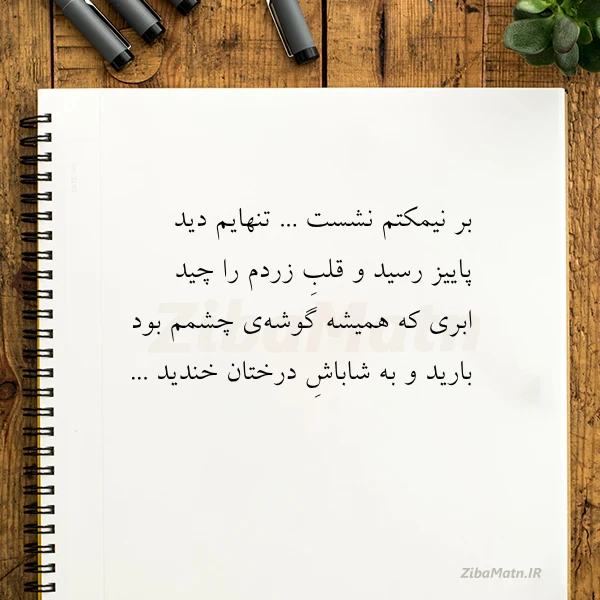 بر نیمکتم نشست ... تنهایم دید
پاییز رسید و قلبِ زردم را چید
ابری که همیشه گوشه‌ی چشمم بود
بارید و به شاباشِ درختان خندید ...
ZibaMatn
ZibaMatn.IR